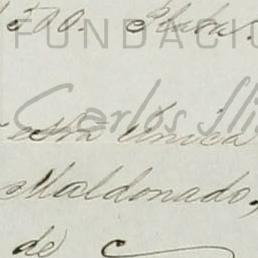 500. Plata.
FUNDACIÓ
Carlos Sli
esta única
Maldonado,
de